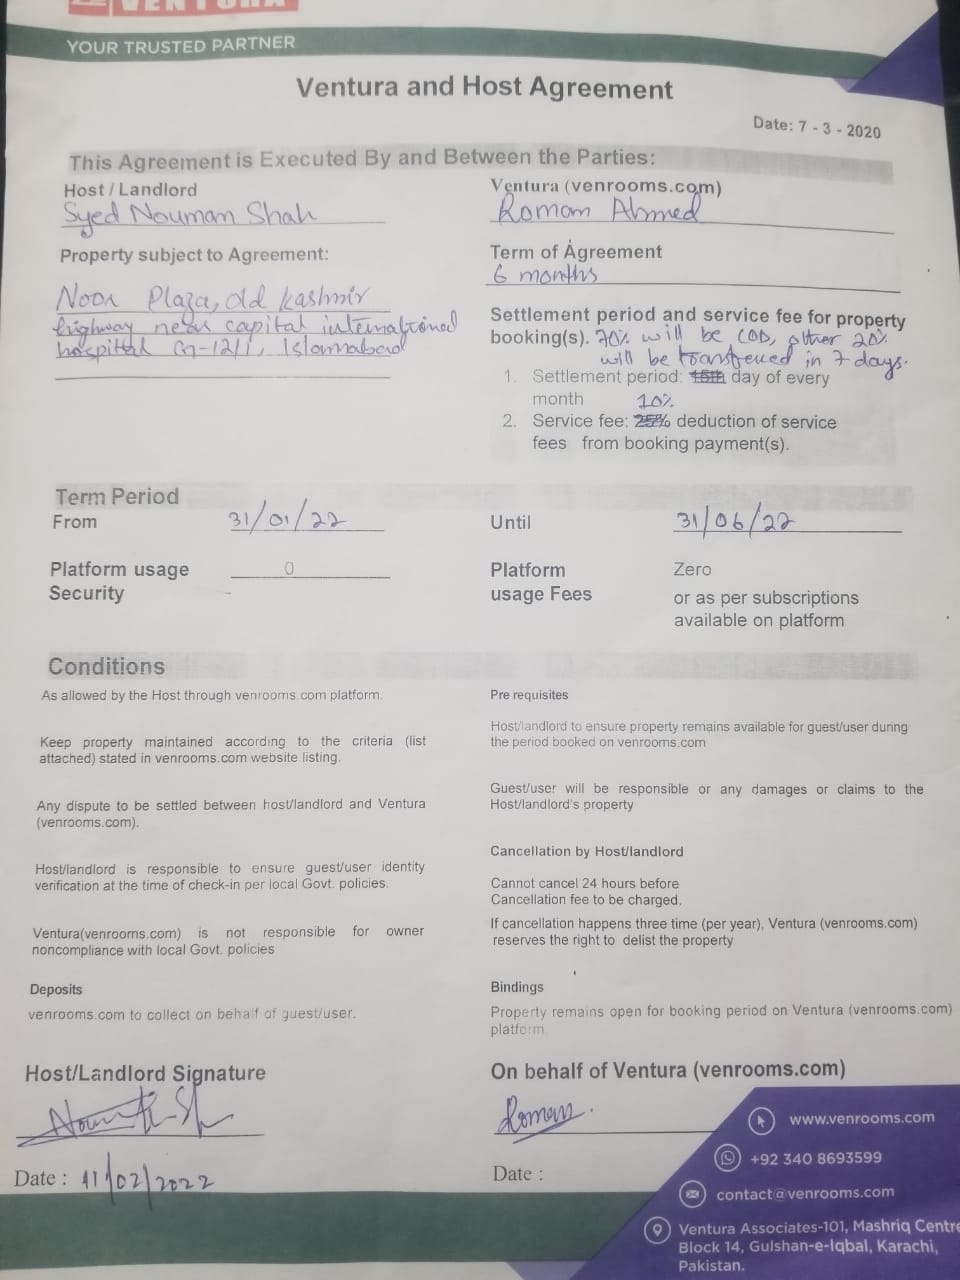 VENTURA
YOUR TRUSTED PARTNER
Ventura and Host Agreement
Date: 7 - 3 - 2020
This Agreement is Executed By and Between the Parties:
Host / Landlord
Syed Nouman Shah
Ventura (venrooms.com)
Roman Ahmed
Property subject to Agreement:
Noor Plaza, old Kashmir
highway near capital international
hospital G-12/1, Islamabad
Term of Agreement
6 months
Settlement period and service fee for property
booking(s). 70% will be COD, other 20%
will be transferred in 7 days.
1. Settlement period: 15th day of every
month
10%
2. Service fee: 25% deduction of service
fees from booking payment(s).
Term Period
From 31/01/22
Until 31/06/22
Platform usage 0
Security
Platform Zero
usage Fees or as per subscriptions
available on platform
Conditions
As allowed by the Host through venrooms.com platform.
Keep property maintained according to the criteria (list
attached) stated in venrooms.com website listing.
Any dispute to be settled between host/landlord and Ventura
(venrooms.com).
Host/landlord is responsible to ensure guest/user identity
verification at the time of check-in per local Govt. policies.
Ventura(venrooms.com) is not responsible for owner
noncompliance with local Govt. policies
Deposits
venrooms.com to collect on behalf of guest/user.
Pre requisites
Host/landlord to ensure property remains available for guest/user during
the period booked on venrooms.com
Guest/user will be responsible or any damages or claims to the
Host/landlord's property
Cancellation by Host/landlord
Cannot cancel 24 hours before
Cancellation fee to be charged.
If cancellation happens three time (per year), Ventura (venrooms.com)
reserves the right to delist the property
Bindings
Property remains open for booking period on Ventura (venrooms.com)
platform
Host/Landlord Signature
Date : 11/02/2022
On behalf of Ventura (venrooms.com)
Roman.
Date :
www.venrooms.com
+92 340 8693599
contact@venrooms.com
Ventura Associates-101, Mashriq Centre
Block 14, Gulshan-e-Iqbal, Karachi,
Pakistan.